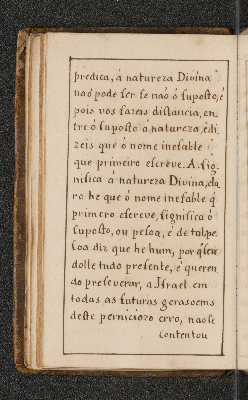 predica, á natureza Divina
naó pode ser se naó ó suposto; é
pois vos fazeis distancia, en-
tre ó suposto a natureza, é di-
zeis que ó nome inefable
que primeiro escreve. A. sig-
nifica á natureza Divina, cla-
ro he que ó nome inefable q̃
primero escreve, significa ó
suposto, ou pesoa, é de tal pe-
soa diz que he hum, por
dolle tudo presente, é queren
do preseverar, a Israel em
todas as futuras gerasoems
deste perniciozo erro, naó se
contentou